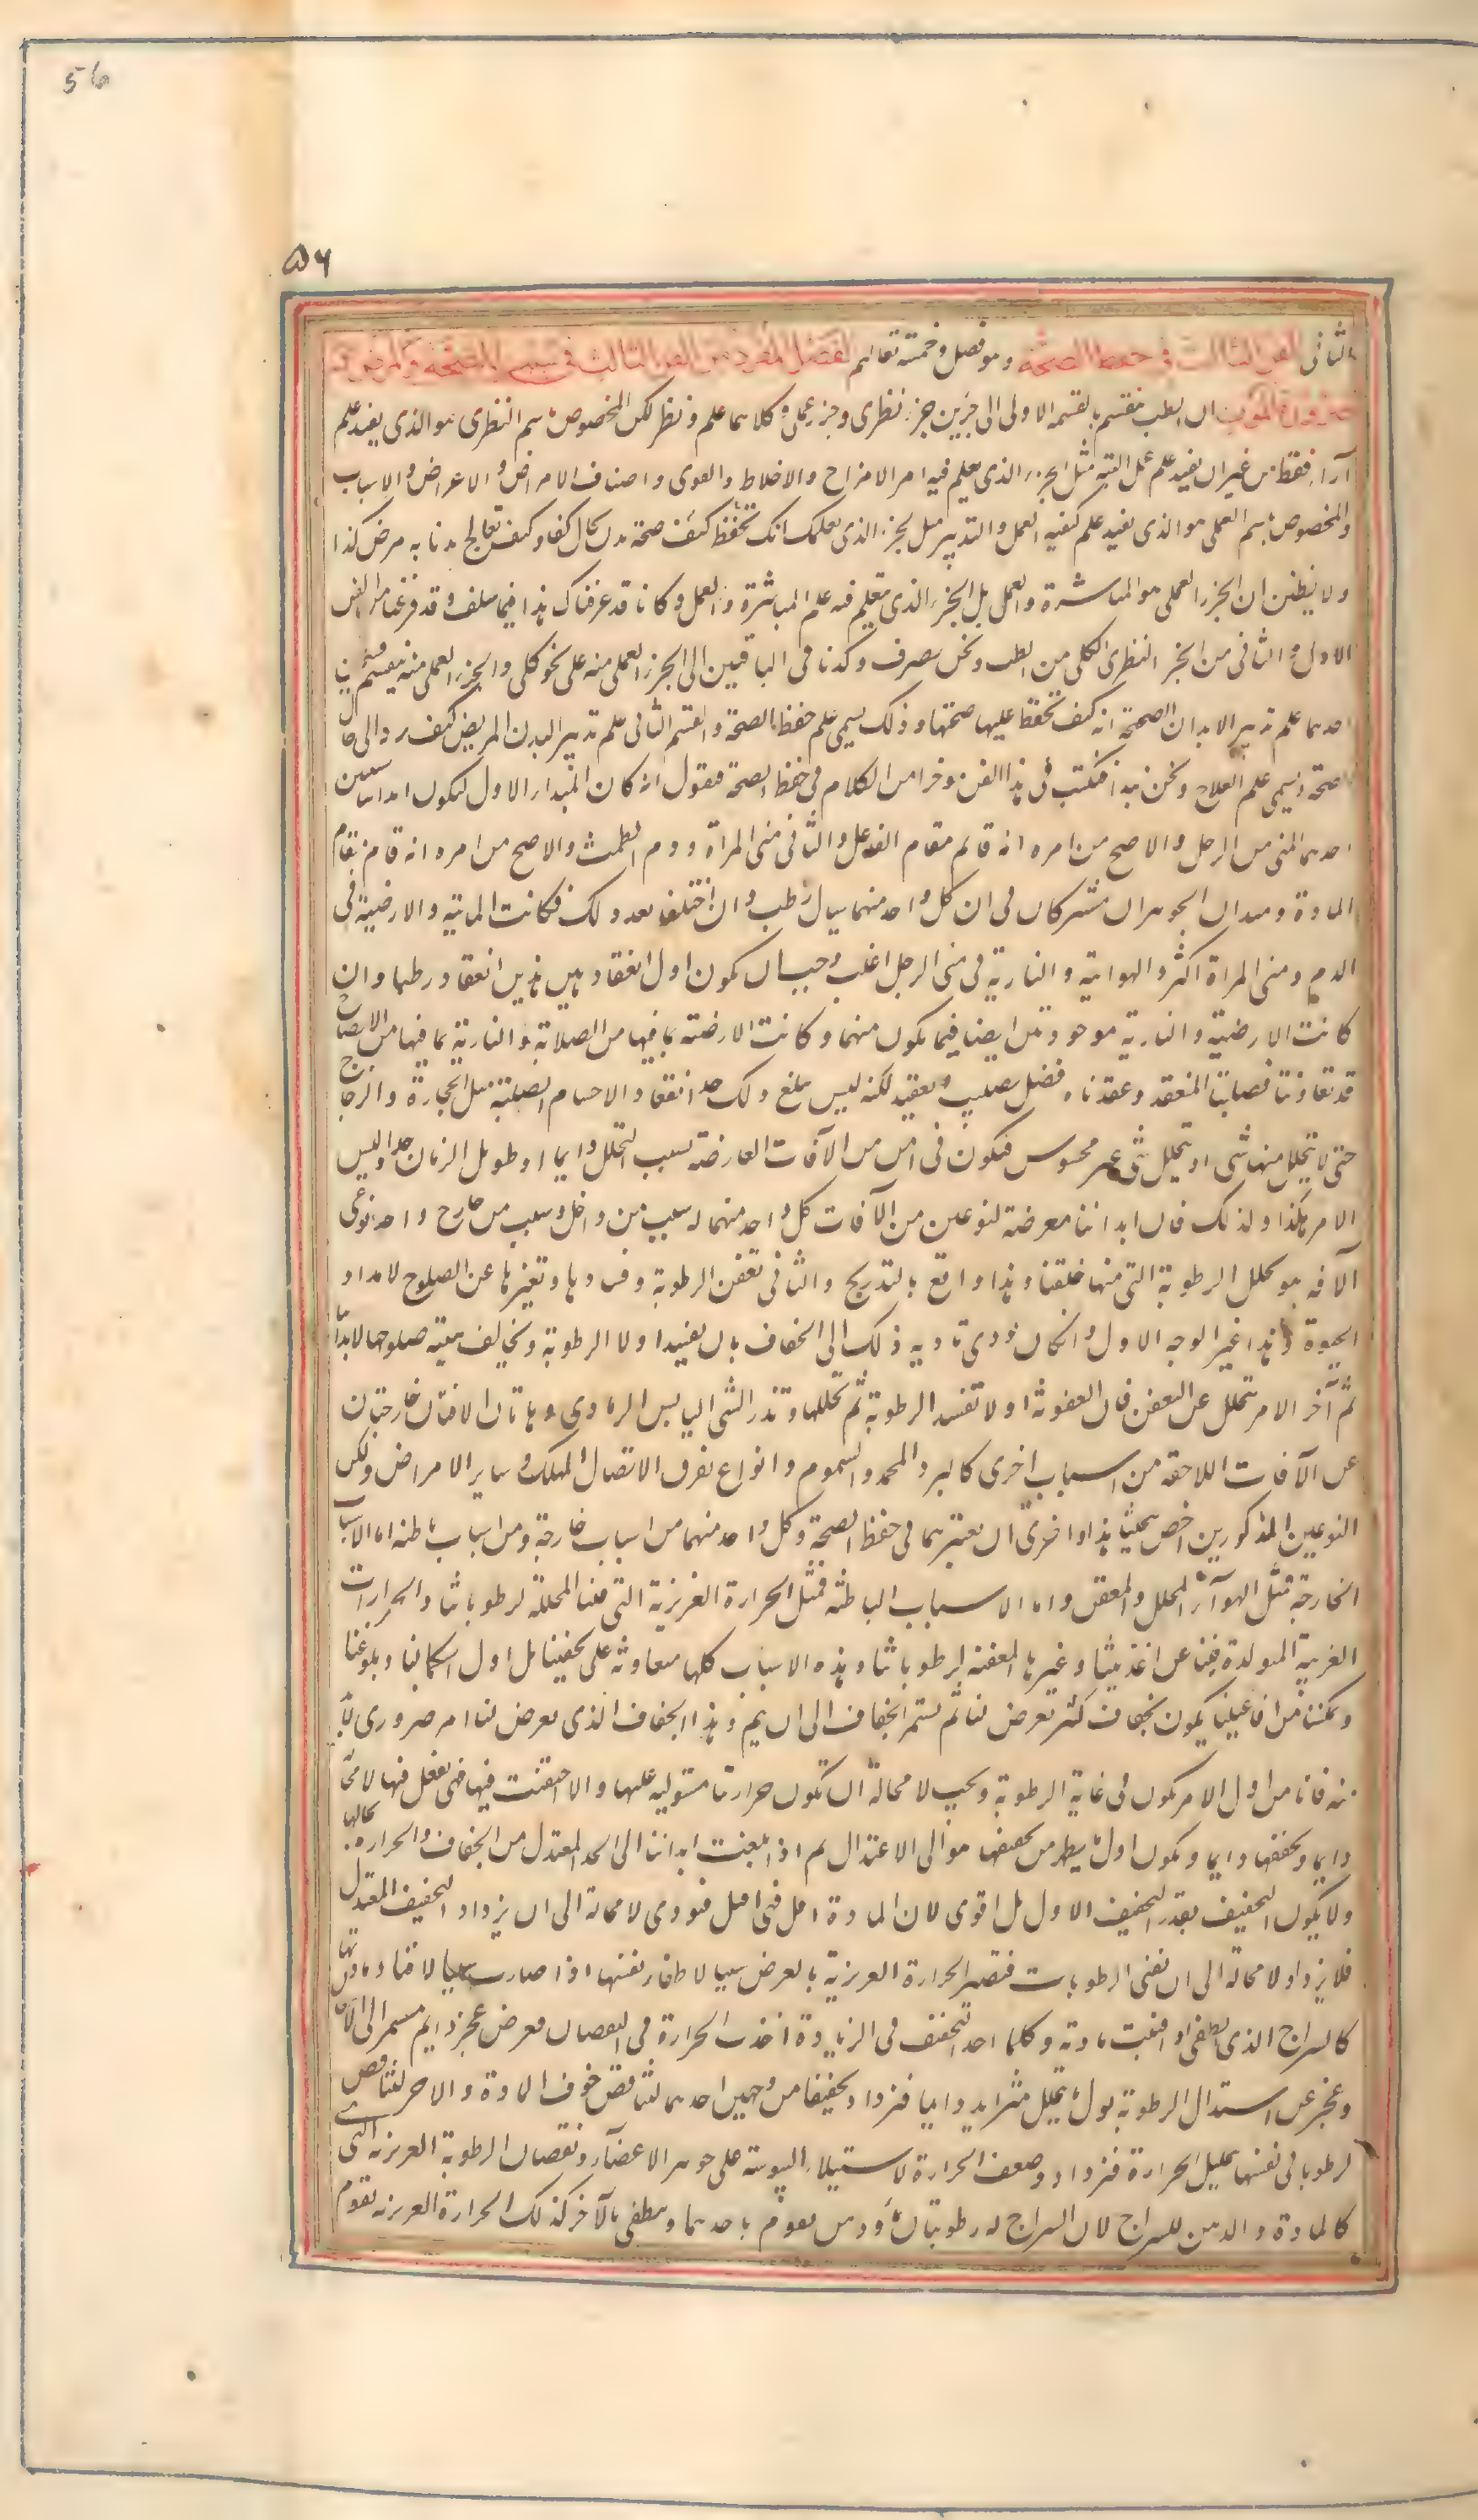 56
۵۶
الثانی الفن الثالث فی حفظ الصحة وهو فصل وخمسة تعالیم الفصل المفرد من الفن الثالث فی سبب الصحة والمرض
وضرورة الموت ان الطب منقسم بالقسمة الاولی الی جزئین جزء نظری وجزء عملی وکلاهما علم ونظر لکن المخصوص باسم النظری هو الذی یفید علم
آراء فقط من غیر ان یفید علم عمل البتة مثل الجزء الذی یعلم فیه امر الامزاج والاخلاط والقوی واصناف الامراض والاعراض والاسباب
والمخصوص باسم العملی هو الذی یفید علم کیفیة العمل والتدبیر مثل الجزء الذی یعلمک انک تحفظ کیف صحة بدن بحال کذا وکیف تعالج بدنا به مرض کذا
ولا یظنن ان الجزء العملی هو المباشرة والعمل بل الجزء الذی یتعلم فیه علم المباشرة والعمل وکانا قد عرفناک هذا فیما سلف وقد فرغنا من الفن
الاول والثانی من الجزء النظری الکلی من الطب ونحن نصرف وکدنا فی الباقیین الی الجزء العملی منه علی نحو کلی والجزء العملی منه ینقسم قسمین
احدهما علم تدبیر الابدان الصحیحة انه کیف تحفظ علیها صحتها وذلک یسمی علم حفظ الصحة والقسم الثانی علم تدبیر البدن المریض کیف یرد الی حال
الصحة ویسمی علم العلاج ونحن نبدا فنکتب فی هذا الفن موخرا من الکلام فی حفظ الصحة فنقول انه کان المبدا الاول لتکون ابداننا شیئین
احدهما المنی من الرجل والاصح من امره انه قائم مقام الفاعل والثانی منی المراة ودم الطمث والاصح من امره انه قائم مقام
المادة وهذان الجوهران مشترکان فی ان کل واحد منهما سیال رطب وان اختلفا بعد ذلک فکانت المائیة والارضیة فی
الدم ومنی المراة اکثر والهوائیة والناریة فی منی الرجل اغلب وجب ان یکون اول انعقاد هذین انعقادا رطبا وان
کانت الارضیة والناریة موجودتین ایضا فیما یکون منهما وکانت الارضیة بما فیها من الصلابة والناریة بما فیها من الانضاج
قد تعاونتا فصلبتا المنعقد وعقدتاه فضل تصلیب وتعقید لکنه لیس یبلغ ذلک حد انعقاد الاجسام الصلبة مثل الحجارة والزجاج
حتی لا یتحلل منها شی او یتحلل شی غیر محسوس فتکون فی امن من الآفات العارضة بسبب التحلل دایما او طویل الزمان جدا ولیس
الامر هکذا ولذلک فان ابداننا معرضة لنوعین من الآفات کل واحد منهما له سبب من داخل وسبب من خارج واحد نوعی
الآفة هو تحلل الرطوبة التی منها خلقنا وهذا واقع بالتدریج والثانی تعفن الرطوبة وفسادها وتغیرها عن الصلوح لامداد
الحیوة وهذا غیر الوجه الاول وان کان یودی تادیه ذلک الی الجفاف بان یفسد اولا الرطوبة ویخالف هیئة صلوحها لابداننا
ثم آخر الامر یتحلل عن العفن فان العفونة اولا تفسد الرطوبة ثم تحللها وتذر الشی الیابس الرمادی وهاتان الآفتان خارجتان
عن الآفات اللاحقة من اسباب اخری کالبرد المجمد والسموم وانواع تفرق الاتصال المهلک وسایر الامراض ولکن
النوعین المذکورین اخص بحثنا هذا واحری ان نعتبرهما فی حفظ الصحة وکل واحد منهما من اسباب خارجة ومن اسباب باطنة اما الاسباب
الخارجة فمثل الهوآء المحلل والمعفن واما الاسباب الباطنة فمثل الحرارة الغریزیة التی فینا المحللة لرطوباتنا والحرارات
الغریبة المتولدة فینا عن اغذیتنا وغیرها المعفنة لرطوباتنا وهذه الاسباب کلها متعاونة علی تجفیفنا بل اول استکمالنا وبلوغنا
وتمکننا من افاعیلنا یکون بجفاف کثیر یعرض لنا ثم یستمر الجفاف الی ان یتم وهذا الجفاف الذی یعرض لنا امر ضروری لابد
منه فانا من اول الامر نکون فی غایة الرطوبة ویجب لا محالة ان تکون حرارتنا مستولیة علیها والا احتقنت فیها فهی تفعل فیها لا محالة
دایما وتجففها دایما ویکون اول ما یظهر من تجفیفها هو الی الاعتدال ثم اذا بلغت ابداننا الی الحد المعتدل من الجفاف والحرارة بحالها
ولا یکون التجفیف بقدر التجفیف الاول بل اقوی لان المادة اقل فهی اقبل فیودی لا محالة الی ان یزداد التجفیف علی المعتدل
فلا یزداد لا محالة الی ان تفنی الرطوبات فتصیر الحرارة الغریزیة بالعرض سببا لاطفاء نفسها اذا صارت سببا لافناء مادتها
کالسراج الذی یطفی اذا افنیت مادته وکلما اخذ التجفف فی الزیادة اخذت الحرارة فی النقصان فعرض عجز دایم مستمر الی الآن
وعجز عن استبدال الرطوبة بدل ما یتحلل متزاید دایما فتزداد تجفیفا من وجهین احدهما لتناقص لحوق المادة والآخر لتناقص
لرطوبة فی نفسها بتحلیل الحرارة فتزداد وضعف الحرارة لاستیلاء الیبوسة علی جوهر الاعضآء ونقصان الرطوبة الغریزیة التی
کالمادة والدهن للسراج لان السراج له رطوبتان مآء ودهن یقوم باحدهما وینطفی بالآخر کذلک الحرارة الغریزیة تقوم